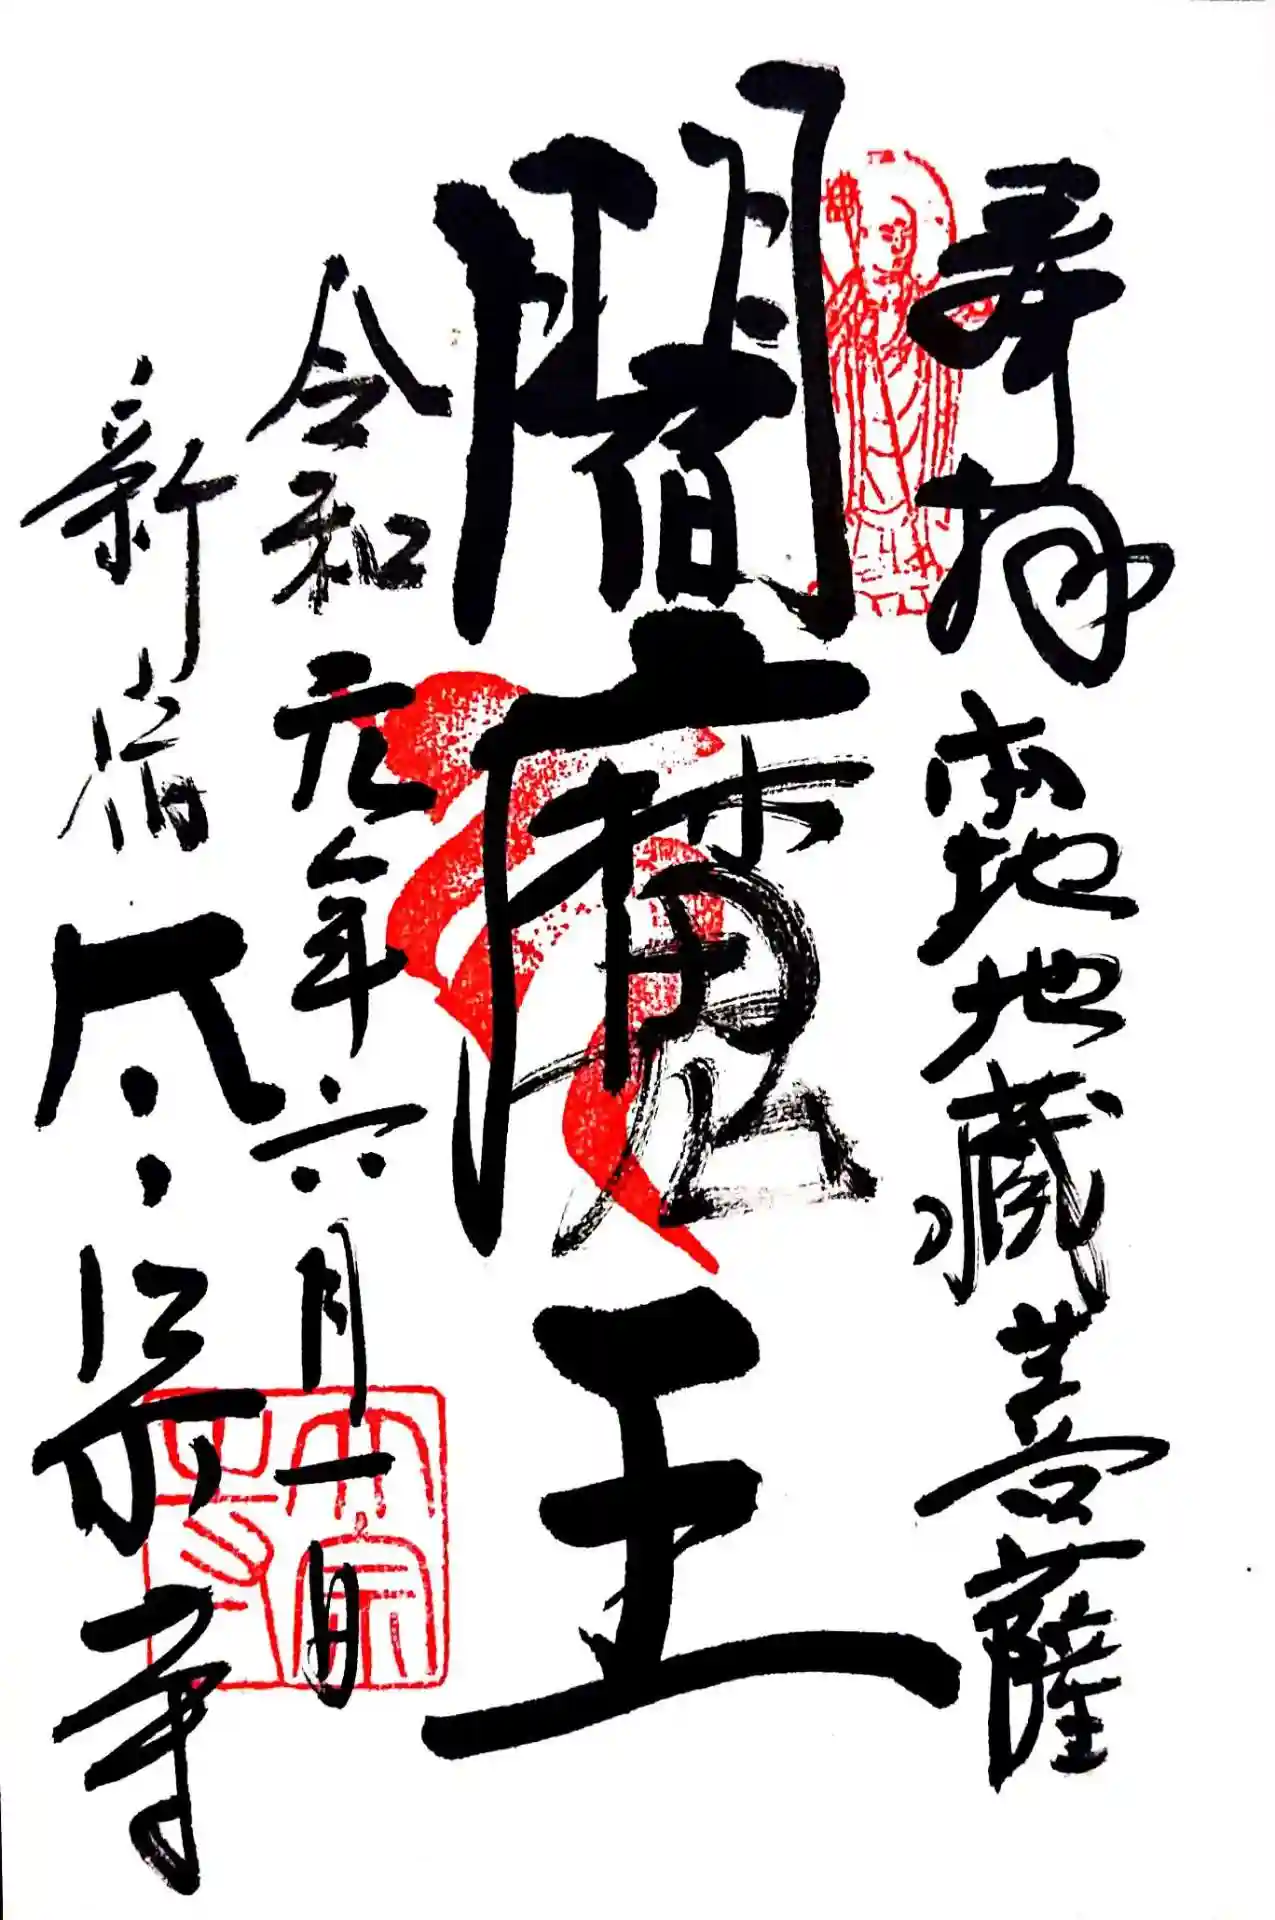 奉拝
本地地蔵菩薩
閻魔王
令和元年六月一日
新宿
太宗寺